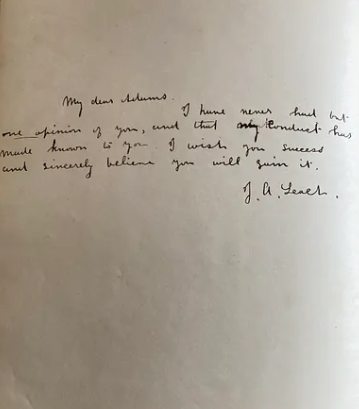 My dear Adams.
I have never had but
one opinion of you, and that my conduct has
made known to you. I wish you success
and sincerely believe you will gain it.
J. A. Leach.